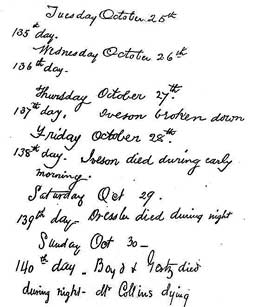 Tuesday October 25th
135th day.
Wednesday October 26th
136th day.
Thursday October 27th.
137th day. Iveson broken down
Friday October 28th.
138th day. Iveson died during early
morning.
Saturday Oct 29.
139th day Dressler died during night
Sunday Oct 30—
140th day. Boyd & Gertz died
during night- Mr Collins dying